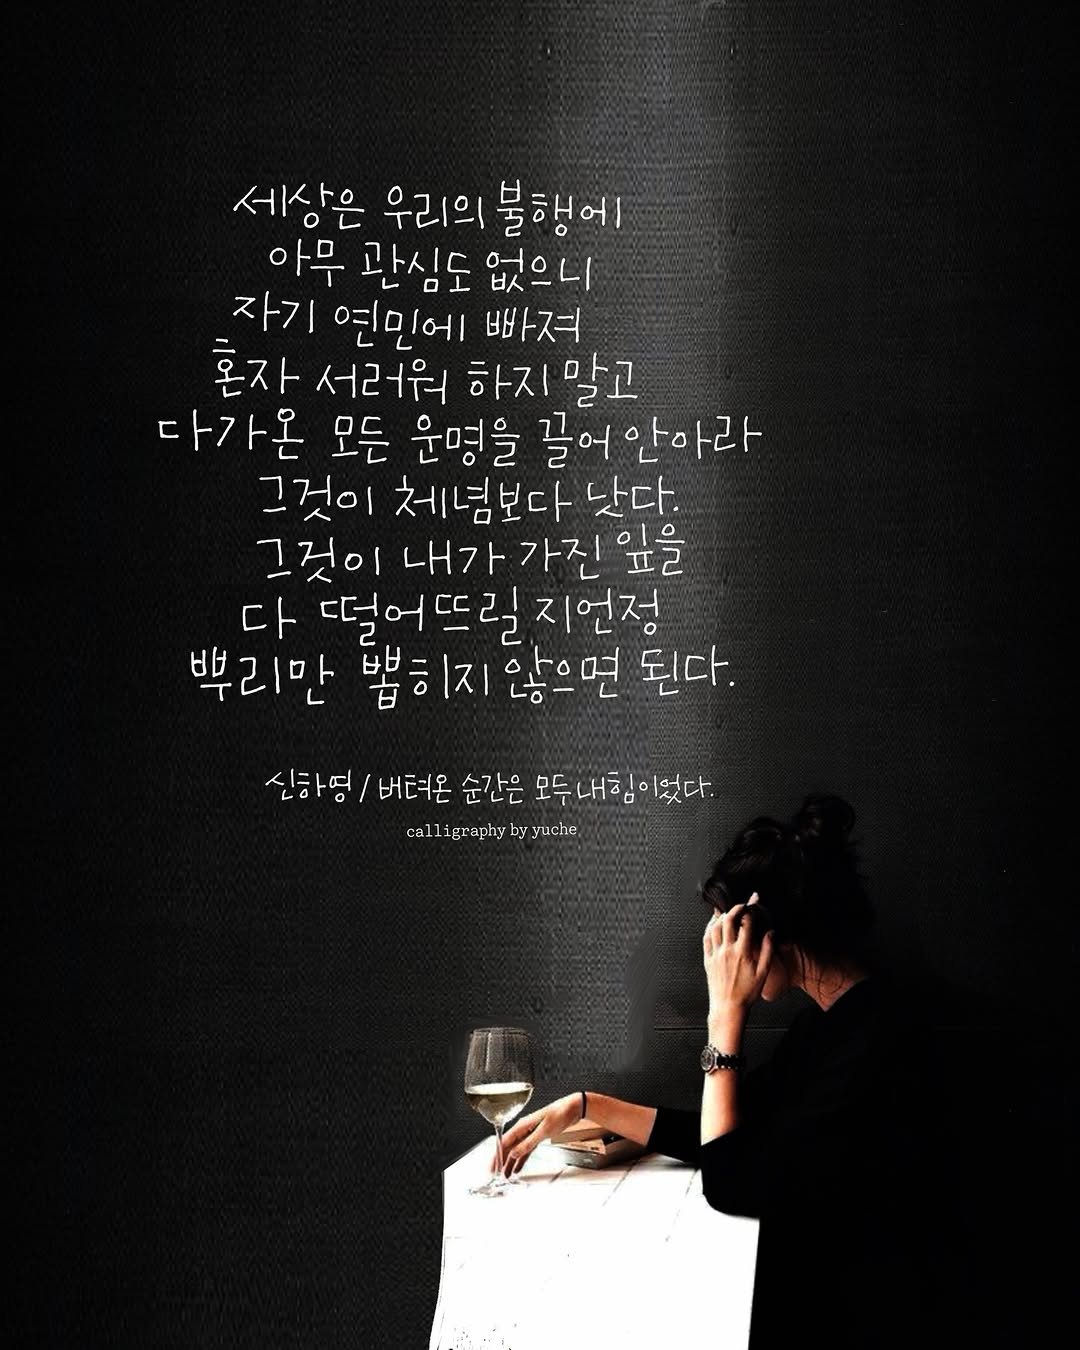 세상은 우리의 불행에
아무 관심도 없으니
자기 연민에 빠져
혼자 서러워 하지 말고
다가온 모든 운명을 끌어 안아라
그것이 체념보다 낫다.
그것이 내가 가진 잎을
다 떨어뜨릴 지언정
뿌리만 뽑히지 않으면 된다.
신하영 / 버텨온 순간은 모두 내 힘이었다.
calligraphy by yuche